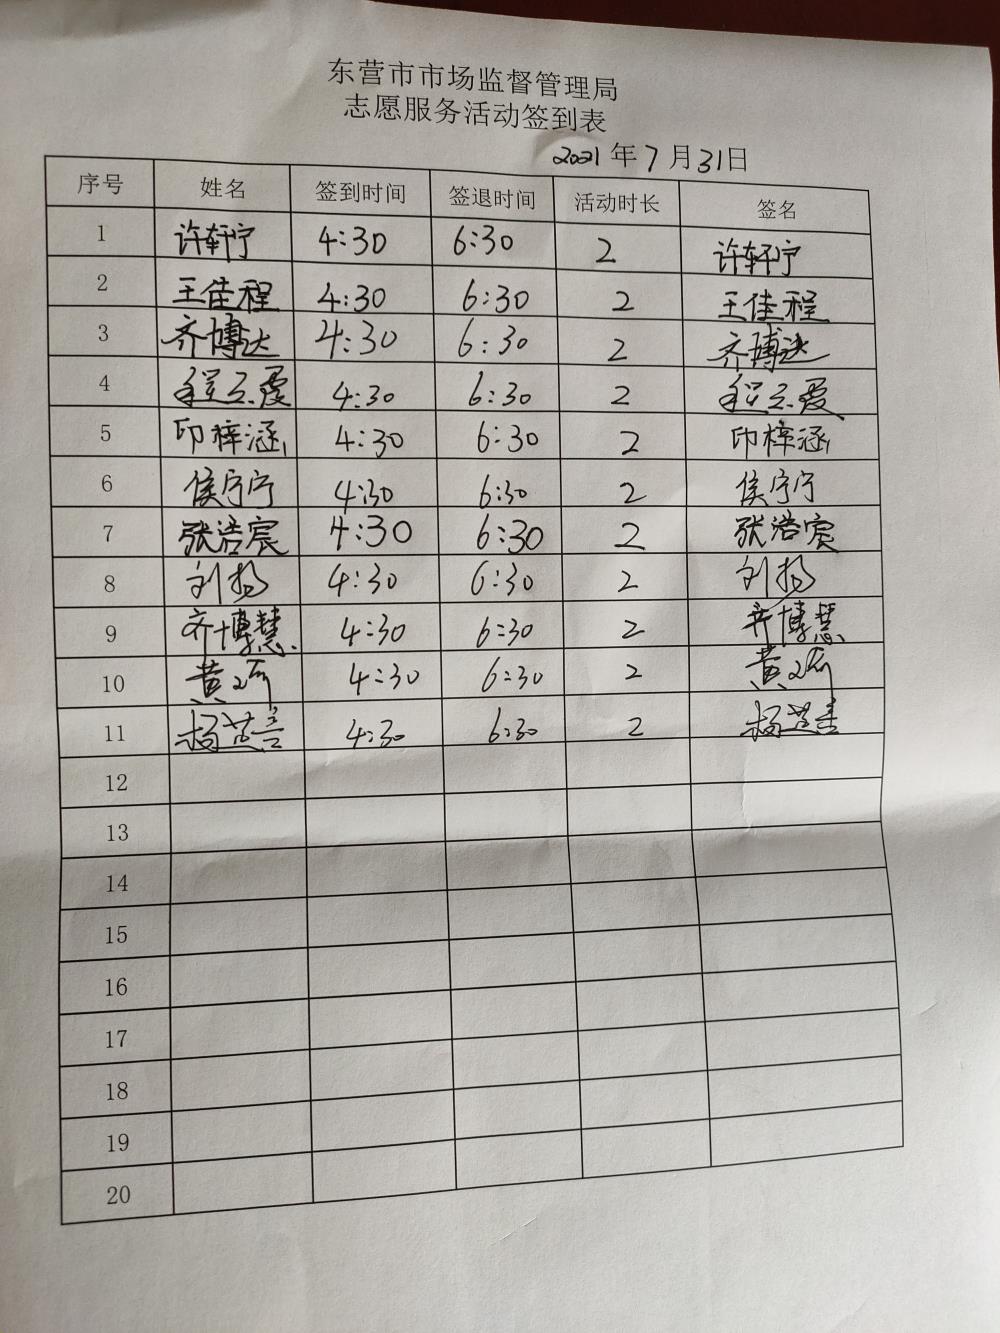 东营市市场监督管理局
志愿服务活动签到表
2021年7月31日
序号 姓名 签到时间 签退时间 活动时长 签名
1 许轩宁 4:30 6:30 2 许轩宁
2 王佳程 4:30 6:30 2 王佳程
3 齐博达 4:30 6:30 2 齐博达
4 4:30 6:30 2
5 印梓涵 4:30 6:30 2 印梓涵
6 侯宁宁 4:30 6:30 2 侯宁宁
7 张浩宸 4:30 6:30 2 张浩宸
8 刘杨 4:30 6:30 2 刘杨
9 齐博慧 4:30 6:30 2 齐博慧
10 4:30 6:30 2
11 4:30 6:30 2
12
13
14
15
16
17
18
19
20